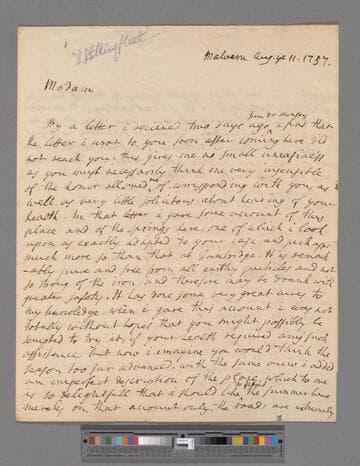 B Stillingfleet
Malvern Aug. ye 11. 1757.
Madam
from Dr Monsey
By a letter i received two days ago i find that
the letter i wrot to you soon after coming here did
not reach you. this gives me no small uneasiness
as you must necessarily think me very insensible
of the honor allowed of corresponding with you, as
well as very little solicitous about hearing of your
health. In that letter i gave some account of this
place and of the springs here, one of which i look
upon as exactly adapted to your case and perhaps
much more so than that at Tunbridge. It is remark
-ably pure and free from all earthy particles and not
so strong of the iron, and therefore may be drank with
greater safety. It has done some very great cures to
my knowledge. when i gave this account i was not
totally without hopes that you might possibly be
tempted to try it, if your health required any such
assistance. but now i imagine you would think the
season too far advanced. with the same view i added
an imperfect description of the place, which to me
is so delightfull that i should like the summer here
merely on that account only. the roads are extremely